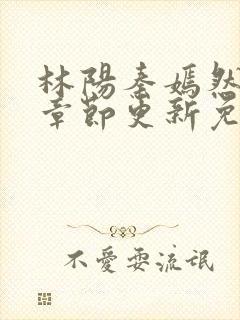 林陽秦嫣然
章節更新免
不愛耍流氓